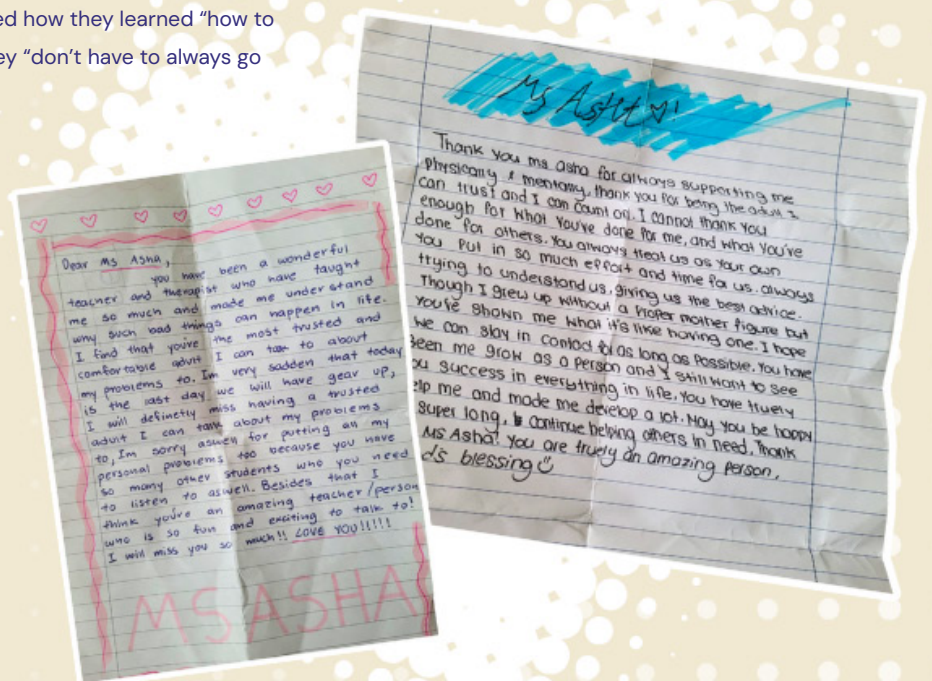 ed how they learned “how to
ey “don’t have to always go
Dear Ms Asha,
you have been a wonderful
teacher and therapist who have taught
me so much and made me understand
why such bad things can happen in life.
I find that you're the most trusted and
comfortable adult I can talk to about
my problems to. Im very sadden that today
is the last day we will have gear up,
I will definetly miss having a trusted
adult I can talk about my problems
to, Im sorry aswell for putting all my
personal problems too because you have
so many other students who you need
to listen to aswell. Besides that I
think you're an amazing teacher/person
who is so fun and exciting to talk to!
I will miss you so much!! LOVE YOU!!!!!
MS ASHA
Ms Asha!
Thank you ms asha for always supporting me
Physically & mentally, thank you for being the adult I
can trust and I can count on. I cannot thank you
enough for what you've done for me, and what you've
done for others. You always treat us as your own
You put in so much effort and time for us. always
trying to understand us, giving us the best advice.
Though I grew up without a proper mother figure but
you've shown me what it's like having one. I hope
we can stay in contact for as long as possible. You have
seen me grow as a person and I still want to see
ou success in everything in life. You have truely
elp me and made me develop a lot. May you be happy
super long, continue helping others in need. Thank
Ms Asha! You are truely an amazing person,
d's blessing